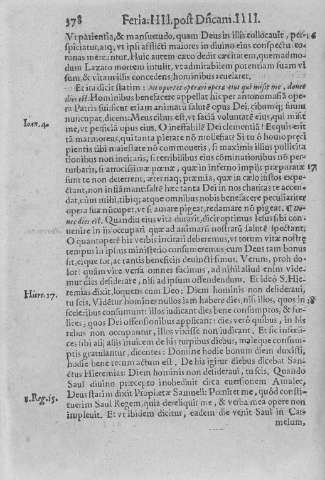 378 Feria. IIII. post Dñcam. IIII.
Vt patientia, & mansuetudo, quam Deus in illis collocauit, per-
spiciatur, aiq; vt ipsi afflicti maiores in diuino eius conspectu co-
ronas mereantur. Huic autem cæco dedit cæcitatem, quemadmo-
dum Lazaro mortem intulit, vt admirabilem potentiam suam vi
sum, & vitam illis concedens, hominibus acuelaret.
Et ita dicit statim: Me oportet operari opera eius qui misit me, donec
dies est. Hominibus benefacere appellat hic per antonomasiã ope-
ra Patris sui: sicut etiam animatũ salutẽ opus Dei, cibumq; suum
nuncupat, dicens: Meus cibus est, vt faciã voluntatẽ eius, qui misit
me, vt perficiã opus eius. O ineffabilẽ Dei clementiã! Equis erit
tã marmoreus, qui tanta pietate nõ molliesat? Si te ô homo præci
pientis tibi maiestate nõ commoueris, si maximis illius pollicita
tionibus non incitaris, si terribilibus eius cõminationibus nõ per-
turbaris, si atrocissimæ pœnæ, quæ in inferno impijs præparatæ
sunt te non deterrent, æternaq; præmia, quæ in cælo iustos expe-
ctant, non inflãmant: saltẽ hæc tanta Dei in nos charitas te accen-
dat, cum nihil tibi, atque omnibus nobis benefacere peculiariter
opera sua nũcupet, vt si amare piget, redamare nõ pigeat. Do-
nec dies est. Quandiu eius vita durat, dicit oportunũ Iesus sibi con-
uenire in ijs occupari, quæ ad animarũ nostrarũ salutẽ spectant;
O quantoperè his verbis incitari deberemus, vt totum vitæ nostræ
tempus in ipsius ministerio consumeremus: cum Deus tam bonus
sit, eique tot, ac tantis beneficijs deuincti simus. Verum, proh do-
lor! quàm vice versa omnes facimus, ad nihil aliud enim vide-
mur dies desiderare, nisi ad ipsum offendendum. Et ideò S. Hie-
remias dixit, loquens cum Deo: Diem hominis non desideraui,
tu scis. Videtur hominẽ nullos iam habere dies, nisi illos, quos in
sceleribus consumunt: illos iudicant dies bene consumptos, & fœ-
lices; quos Dei offensionibus applicant: dies verò quibus, in his
rebus non occupantur, illos vixisse non iudicant. Et sic inferi-
ces tibi ait, alijs inuicem de his turpibus diebus, malèque consum-
ptis gratulantur, dicentes: Domine hodie bonum diem duxisti,
hodie bene tecum actum est. De his igitur diebus dicebat San-
ctus Hieremias: Diem hominis non desideraui, tu scis. Quando
Saul diuino præcepto inobediuit circa euersionem Amalec,
Deus statim dixit Prophetæ Samueli: Pœnitet me, quòd consti-
tuerim Saul Regem, quia dereliquit me, & verba mea opere non
impleuit. Et vt ibidem dicitur, eadem die venit Saul in Car-
melum,
Ioan. 4.
Hiere. 17.
1. Reg. 15.
6
17
18